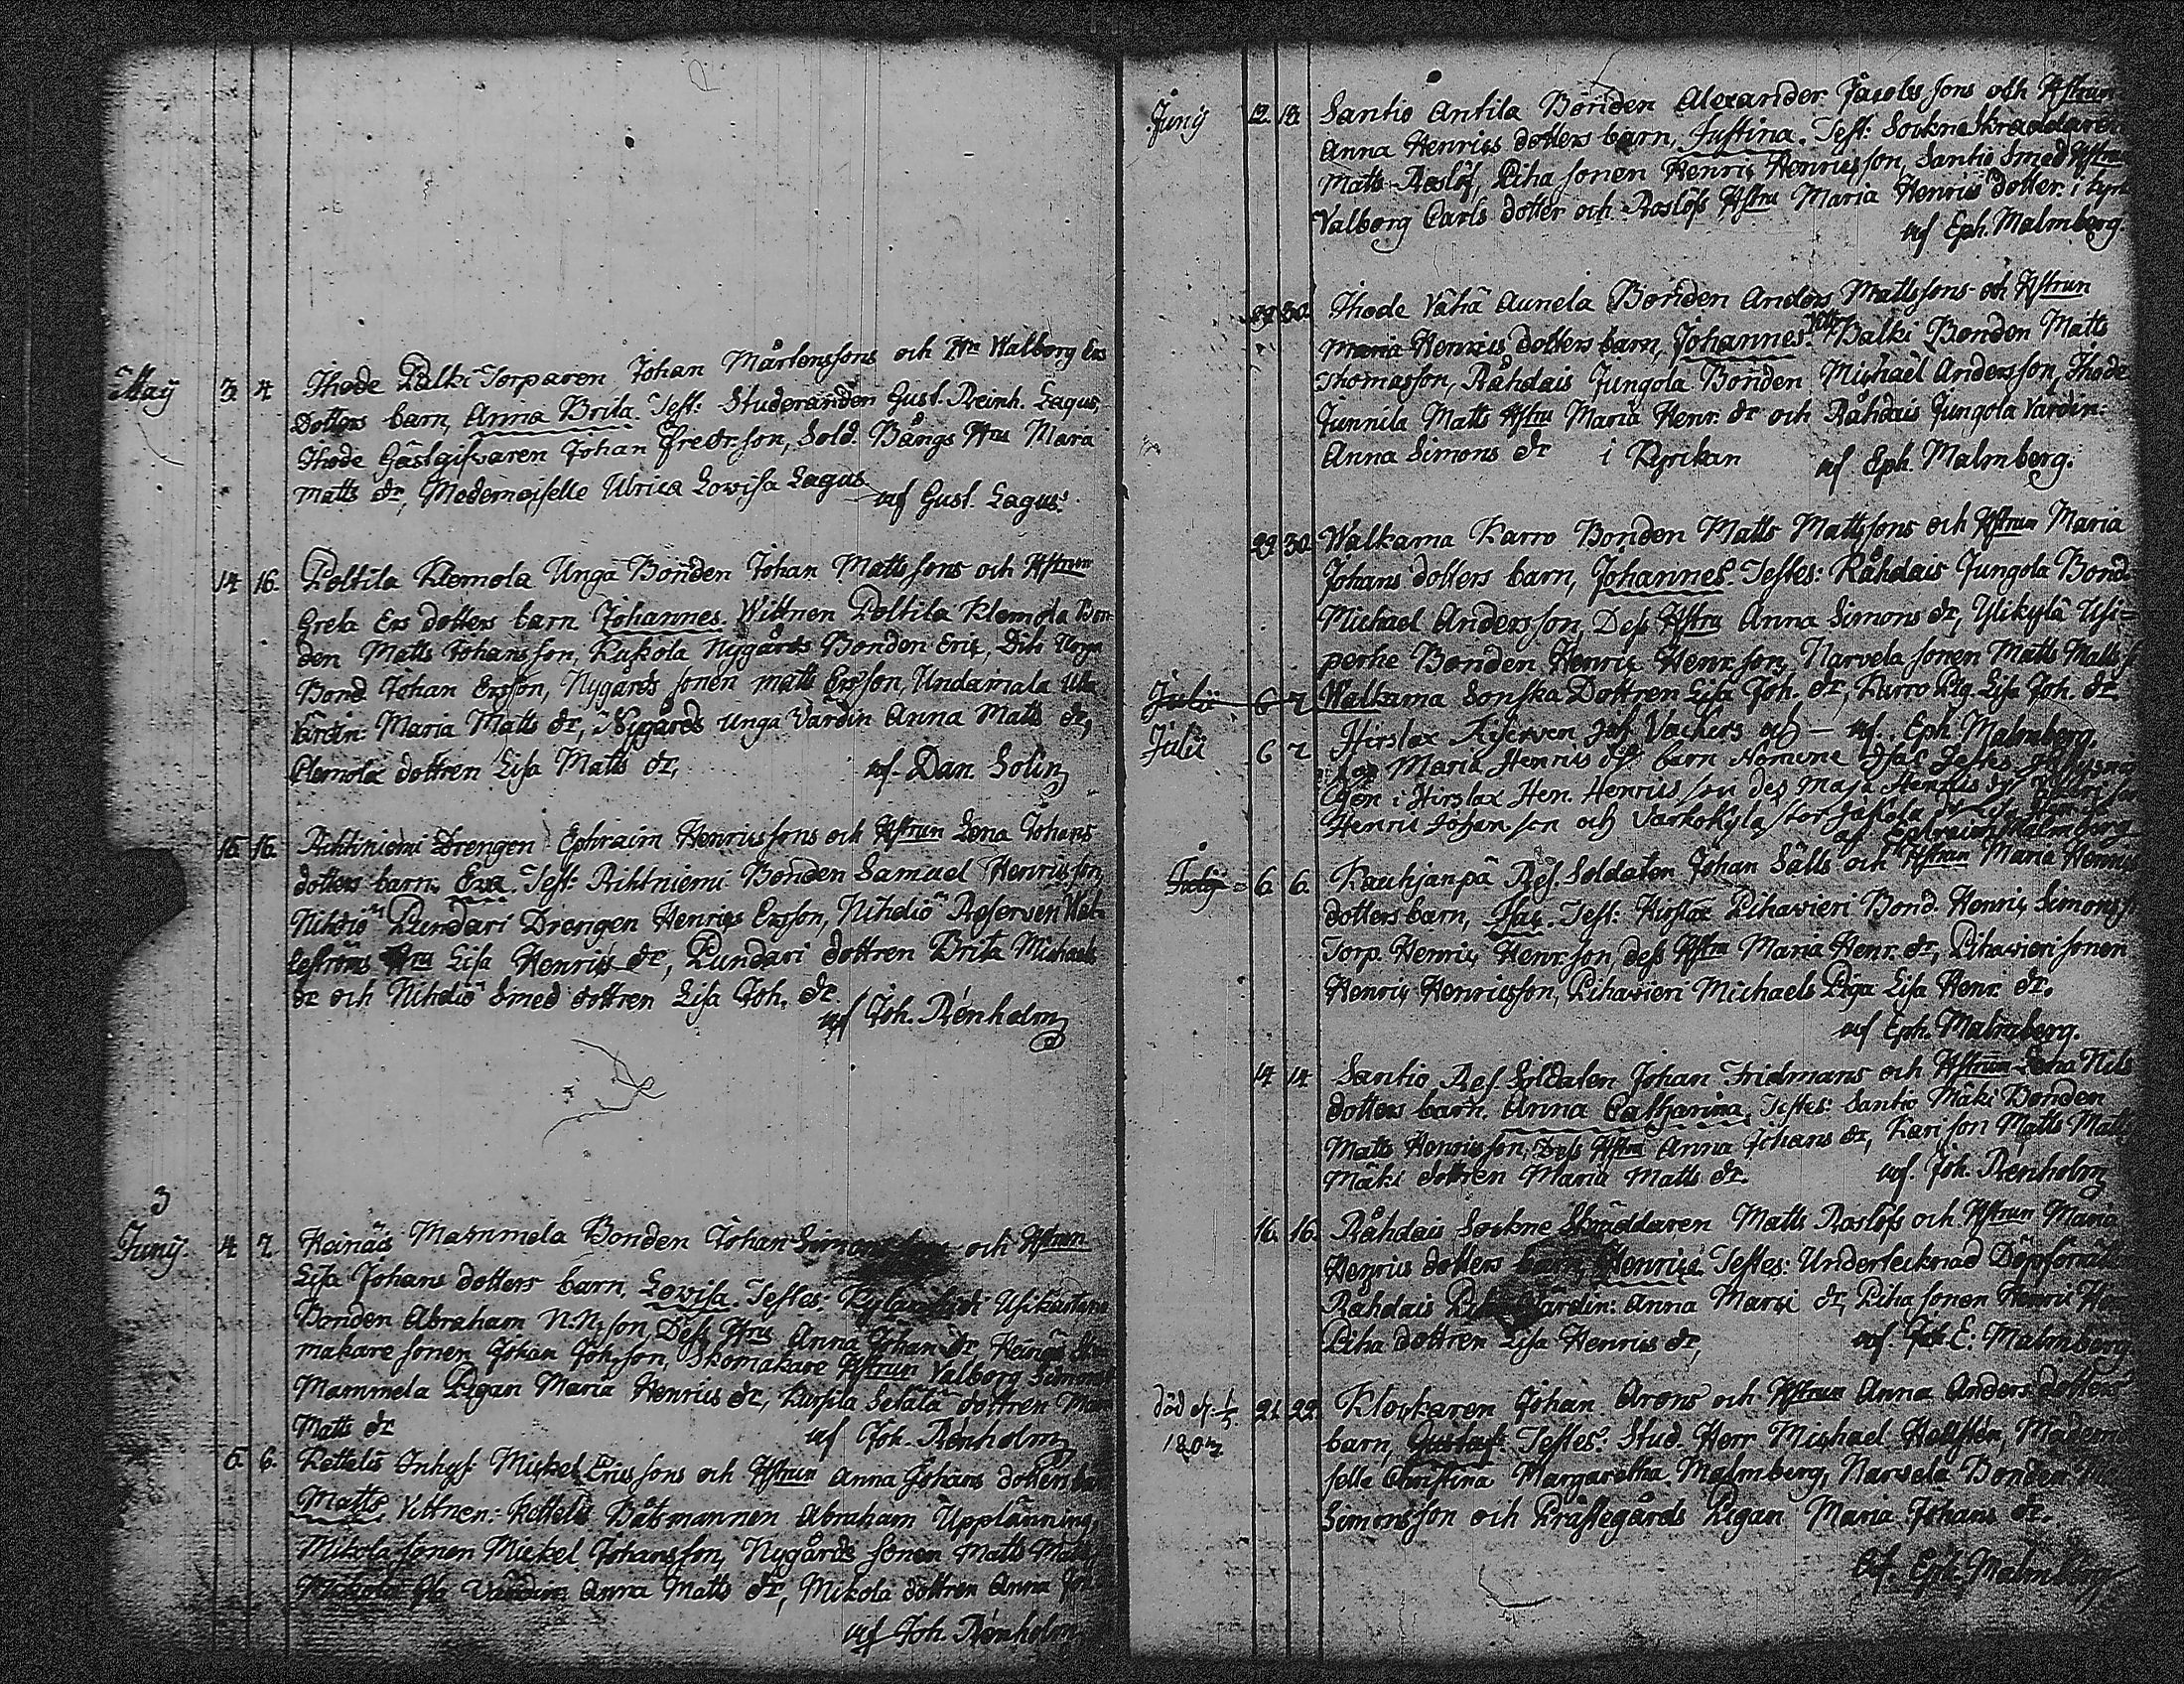 May 3. 4. Ihode Palki Torparen Johan Mårtenssons och Hu Walborg Ers
Dotters barn, Anna Brita. Test: Studeranden Gust. Reinh. Lagus,
Ihode Gästgifvaren Johan Fredr.son, Sold. Bångs Hru Maria
Matts dr, Mademoiselle Ulrica Lovisa Lagus
af Gust. Lagus.
14 16. Peltila Klemola Unga Bonden Johan Mattssons och Hstrun
Greta Ers dotters barn Johannes. Wittnen Peltila Klemola Bon
den Matts Johansson, Kukola Nygårds Bonden Eric, Dito Unga
Bond Johan Ersson, Nygårds sonen Matts Ersson, Undamala
Värdin: Maria Matts dr, Nygårds unga Värdin Anna Matts dr,
Clemola dottren Lisa Matts dr,
af. Dan. Solin
15. 16. Rihtniemi Drengen Ephraim Henricssons och Hstrun Lena Johans
dotters barn, Eva. Test: Rihtniemi Bonden Samuel Henricsson,
Nihdiö Pundari Drengen Henric Ersson, Nihdiö Reserven
Hru Lisa Henrics dr, Pundari dottren Brita Michaels
dr och Nihdiö Smed dottren Lisa Joh. dr.
af Joh. Renholm
3
Junij. 4. 7. Heinäis Mammela Bonden Johan och Hstrun
Lisa Johans dotters barn, Lovisa. Testes:
Bonden Abraham N.N.son, Dess Hru Anna Johan dr, Heinäs
makare sonen Johan Joh.son, Skomakare Hstrun Valborg Simons
Mammela Pigan Maria Henrics dr, Kursila Setälä dottren
Matts dr af Joh. Renholm
5. 6. Kettelis Inhys: Mickel Ericssons och Hstrun Anna Johans dotters
Matts. Vittnen: Kettelis Båtsmannen Abraham Upplänning,
Mikola sonen Mickel Johansson, Nygårds sonen Matts
Mikola Värdin Anna Matts dr, Mikola dottren Anna
af Joh. Renholm
Junij 12. 13. Santio Antila Bonden Alexander Jacobs sons och Hstrun
Anna Henrics dotters barn, Justina. Test: Sockne Skraddaren
Matts Roslöf, Piha sonen Henric Henricsson, Santio Smed Hstru
Valborg Carls dotter och Roslöfs Hstru Maria Henrics dotter. i
af Eph. Malmberg.
29 30. Ihode Vähä Aunela Bonden Anders Mattssons och Hstrun
Maria Henrics dotters barn, Johannes. Palki Bonden Matts
Thomasson, Råhdais Jungola Bonden Michaël Andersson, Ihode
Junnila Matts Hstru Maria Henr. dr och Råhdais Jungola Värdin:
Anna Simons dr i Kyrckan af Eph. Malmberg.
29. 30. Walkama Karro Bonden Matts Mattssons och Hstrun Maria
Johans dotters barn, Johannes. Testes: Råhdais Jungola Bond.
Michael Andersson, Dess Hstru Anna Simons dr, Ylikylä Usi=
perhe Bonden Henric Henr.son, Narvela sonen Matts Matts
Julii 6 7 Walkama Sonska Dottren Lisa Joh. dr, Karro Pig. Lisa Joh. dr.
af. Eph. Malmberg.
Julii 6 7 Hirslax Reserven Jos. Vackers och
Maria Henrics dr barn Nomine Isac Testes
i Hirslax Hen. Henricsson dess Maja Henrics dr
Henric Johansson och Varhokylä stor
af Ephraim Malmberg
Julij 6. 6. Kauhjanpä Res. Soldaten Johan Sälls och Hstrun Maria Henrics
dotters barn, Isac. Test: Hirslax Pihavieri Bond. Henric Simons
Torp. Henric Henr.son, dess Hstru Maria Henr. dr, Pihavieri sonen
Henric Henricsson, Pihavieri Michaels Piga Lisa Henr. dr.
af Eph. Malmberg.
14 14 Santio Res. Soldaten Johan Fridmans och Hstrun Lena Nils
dotters barn. Anna Catharina, Testes: Santio Mäki Bonden
Matts Henricsson, Dess Hstru Anna Johans dr, Kari son Matts Matts
Mäki dottren Maria Matts dr. af. Joh. Renholm
16. 16. Råhdais Sockne Skräddaren Matts Roslöfs och Hstrun Maria
Henrics dotters barn, Henric. Testes: Undertecknad
Råhdais Värdin: Anna Marci dr, Piha sonen Henric
Piha dottren Lisa Henrics dr, af. E. Malmberg
död d. 1/5. 1802 21. 22. Klockaren Johan Arons och Hstrun Anna Anders dotters
barn, Gustaf. Testes: Stud. Herr Michael Hellstén, Mademoi
selle Christina Margaretha Malmberg, Narvela Bonden
Simonsson och Prästegårds Pigan Maria Johans dr.
af. Eph. Malmberg